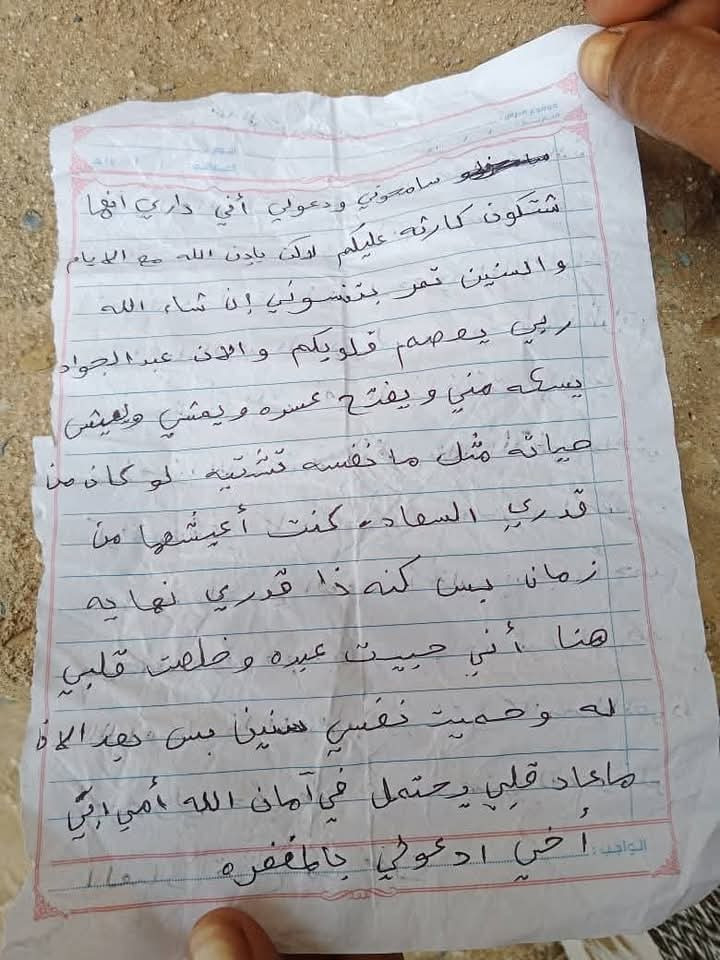 سامحوني ودعولي أني داري انها
شتكون كارثه عليكم لاكن بإذن الله مع الايام
والسنين تمر بتنسوني إن شاء الله
ربي يعصم قلوبكم والان عبدالجواد
مني ويفتح عسره ويمشي ويعيش
حياته مثل ما نفسه تشتيه لو كان من
قدري السعاده كنت أعيشها من
زمان بس كنه ذا قدري نهايه
هنا أني حبيت عبده وخلصت قلبي
له وحميت نفسي سنين بس بعد الان
ماعاد قلبي يحتمل في آمان الله أمي
أخي ادعولي بالمغفره
الواجب: